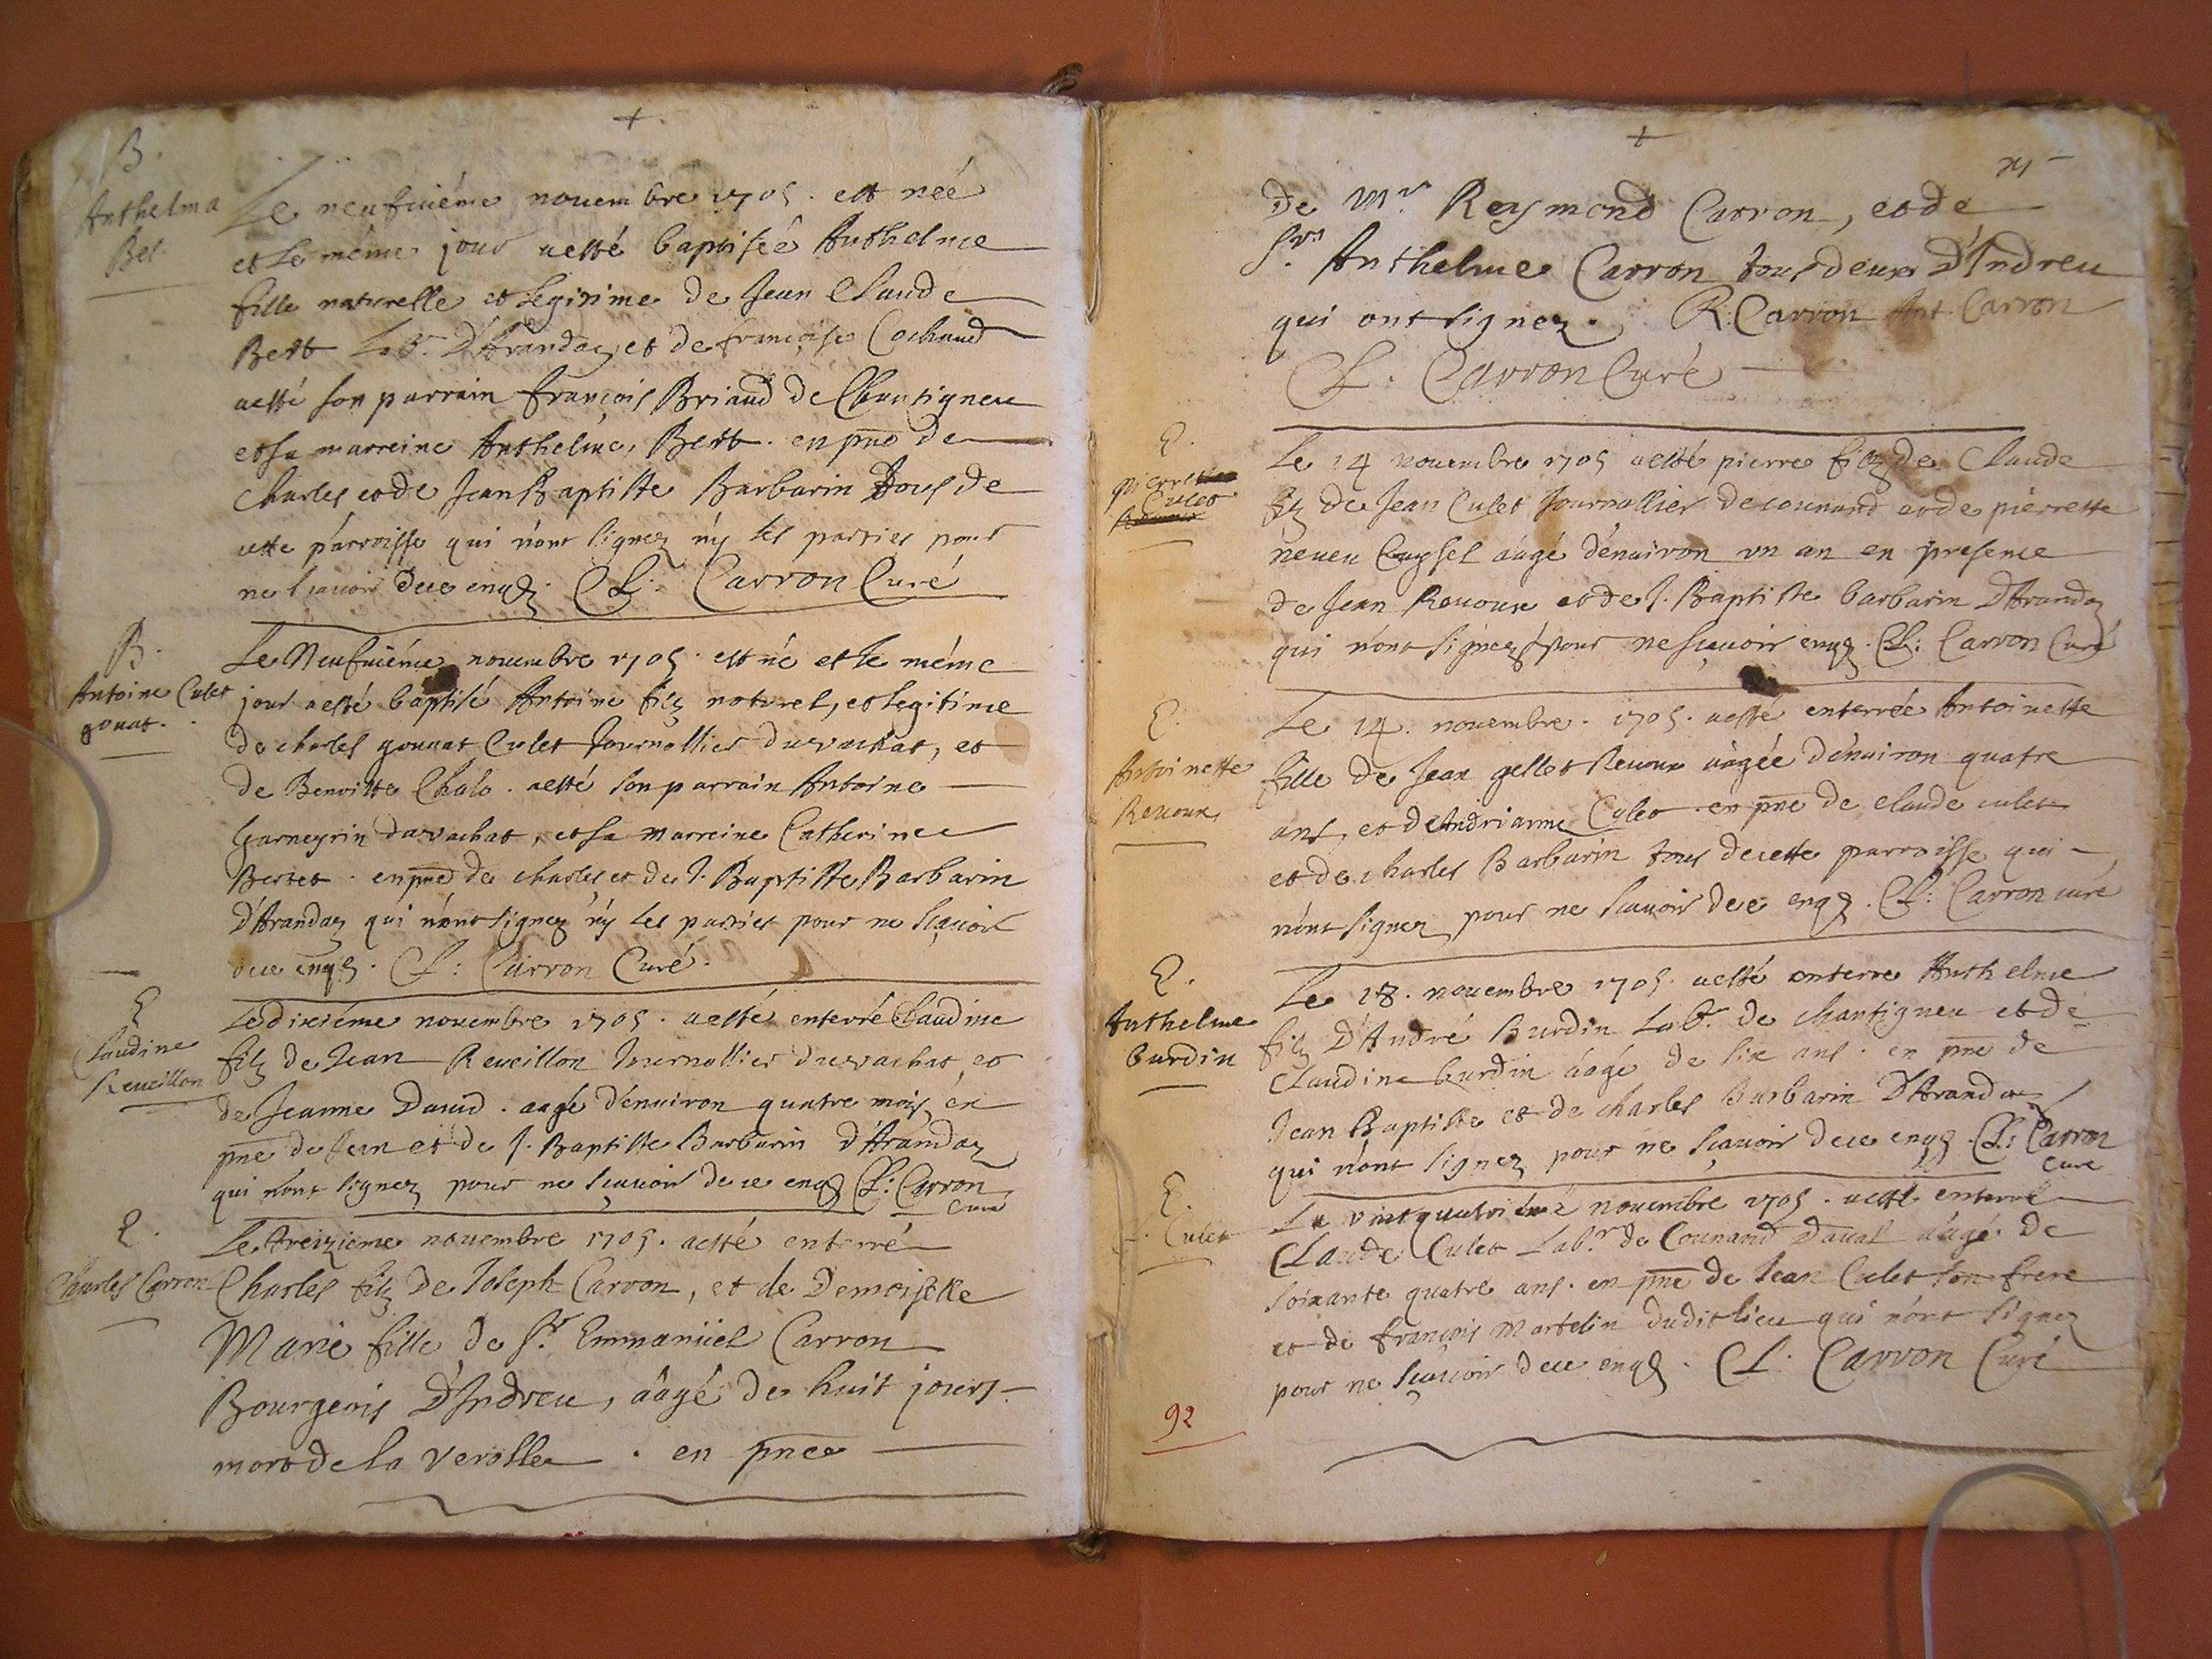 +
B.
Anthelma
Bet.
Le neufuiéme nouembre 1705. est néé
et le méme jour aesté baptiséé Anthelme
fille naturelle et legitime de Jean Claude
Bett Lab.r D'Arandaz et de françoise Cochaud
aesté son parrain françois Briaud de Chantigneu
et sa marreine Anthelme Bett. en pn̄ce de
Charles et de Jean Baptiste Barbarin tous de
cette parroisse qui n'ont signez n'y les parties pour
ne scauoir dece enqs. CL: Carron Curé
B.
Antoine Culet
gonat.
Le Neufuiéme nouembre 1705. est né et le méme
jour aesté baptisé Antoine filz naturel, et legitime
de charles gonnat Culet Journallier duvachat, et
de Benoitte Chalo. aesté son parrain Antoine
Garneyrin duvachat, et sa marreine Catherine
Bertet. en pn̄ce de charles et de J. Baptiste Barbarin
d'Arandaz qui n'ont signez n'y les parties pour ne scauoir
dece enqs. CL: Carron Curé.
E
Claudine
Reueillon
Le dixiéme nouembre 1705. aesté enterré Claudine
filz de Jean Reueillon Journallier duvachat, et
de Jeanne Dauid. aagé d'enuiron quatre mois en
pn̄ce de Jean et de J. Baptiste Barbarin d'Arandaz
qui n'ont signez pour ne scauoir de ce enqs CL: Carron
Curé
E.
Charles Carron
Le treizieme nouembre 1705. aesté enterré
Charles filz de Joseph Carron, et de Demoiselle
Marie fille de Sr. Emmanüel Carron
Bourgeois D'Indreu, áagé de huit jours
mort de la verolle. en pn̄ce
+
de Mr. Reymond Carron, et de
Sr. Anthelme Carron tous deux D'Indreu
qui ont signez. R: Carron Ant. Carron
CL. Carron Curé
E.
pierre
Culet
Le 14 nouembre 1705 aesté pierre filz de Claude
filz de Jean Culet Journallier de counand et de pierrette
neueu áagé d'enuiron vn an en presence
de Jean Reuoux et de J. Baptiste barbarin D'Arandaz
qui n'ont signez pour ne scauoir enqs. CL: Carron Curé
E.
Antoinette
Reuoux
Le 14. nouembre. 1705. aesté enterréé Antoinette
fille de Jean gellet Reuoux áagée d'enuiron quatre
ans, et de Andrianne Culet. en pn̄ce de claude culet
et de charles Barbarin tous decette parroisse qui
n'ont signez pour ne scauoir dece enqs. CL: Carron curé
E.
Anthelme
burdin
Le 18. nouembre 1705. aesté enterre Anthelme
filz D'André Burdin Lab.r de chantigneu et de
Claudine burdin áagé de six ans. en pn̄ce de
Jean Baptiste et de charles Barbarin D'Arandaz
qui n'ont signez pour ne scauoir dece enqs. CL: Carron
Curé
E.
C. Culet
Le vint quatriémé nouembre 1705. aesté enterré
Claude Culet Lab.r de Counand Daual áagé de
soixante quatre ans. en pn̄ce de Jean Culet son frere
et de françois martelin dudit lieu qui n'ont signez
pour ne scauoir dece enqs. CL. Carron Curé
92